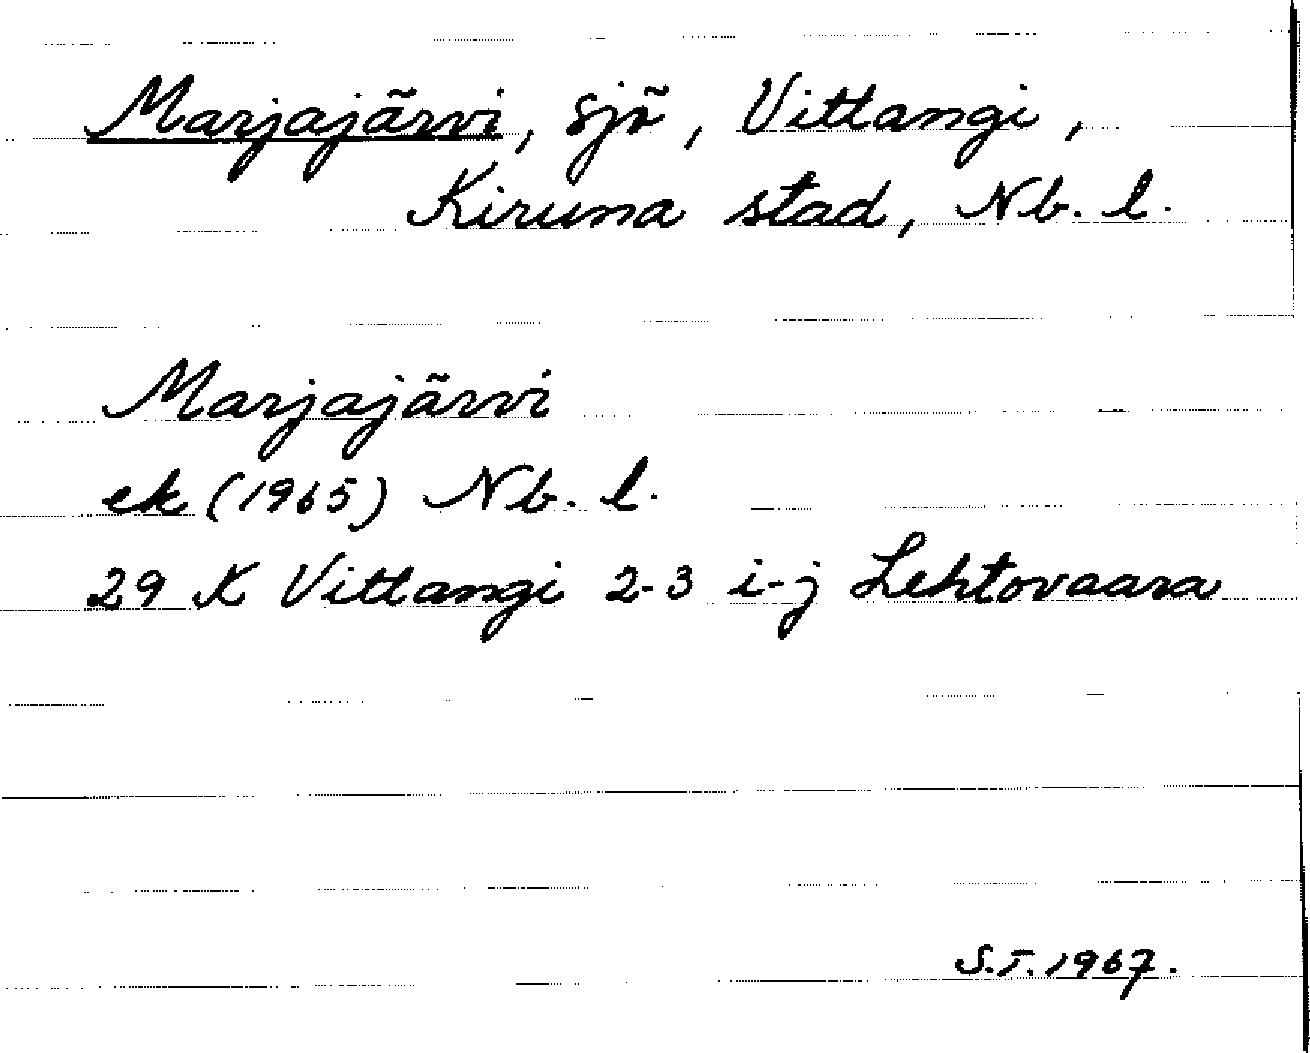 Marjajärvi, sjö, Vittangi,
Kiruna stad, Nb. l.
Marjajärvi
ek (1965) Nb. l.
29 K Vittangi 2-3 i-j Lehtovaara
S.T. 1967.